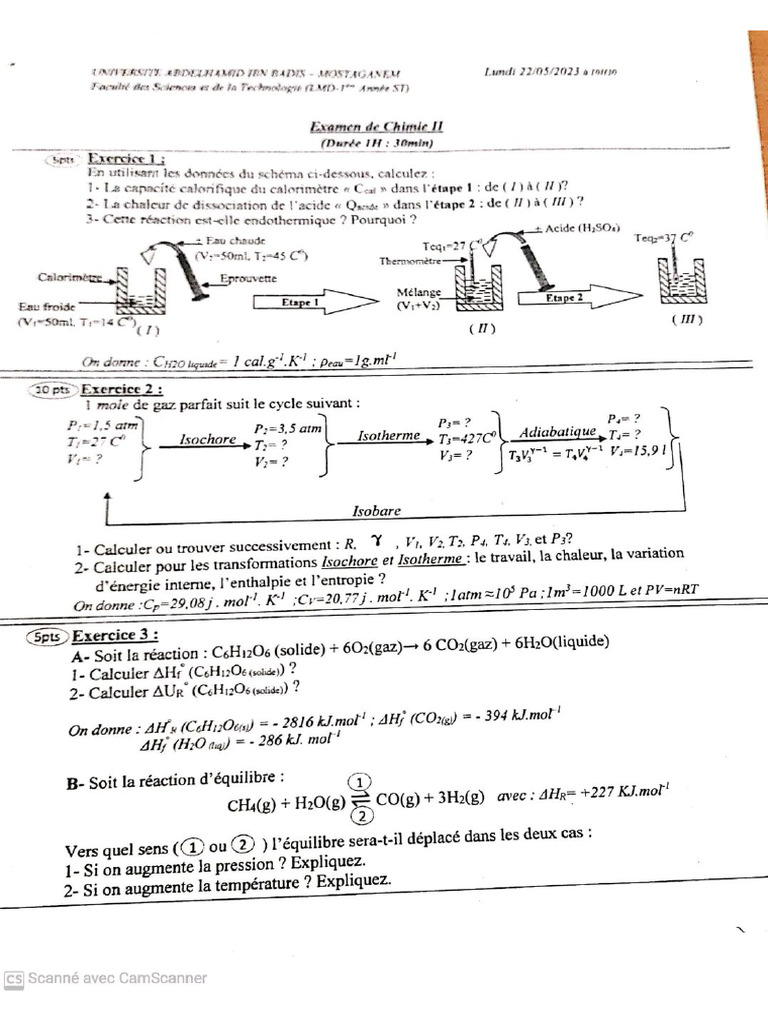 UNIVERSITE ABDELHAMID IBN BADIS - MOSTAGANEM
Lundi 22/05/2023 à
Faculté des Sciences et de la Technologie (LMD-1ère Année ST)
Examen de Chimie II
(Durée 1H : 30min)
5pts Exercice 1 :
En utilisant les données du schéma ci-dessous, calculez :
1- La capacité calorifique du calorimètre « Ccal » dans l'étape 1 : de ( I ) à ( II )?
2- La chaleur de dissociation de l'acide « Qacide » dans l'étape 2 : de ( II ) à ( III ) ?
3- Cette réaction est-elle endothermique ? Pourquoi ?
Eau chaude
(V2=50ml, T2=45 C°)
Teq1=27 C°
Acide (H2SO4)
Teq2=37 C°
Thermomètre
Calorimètre
Eprouvette
Mélange
(V1+V2)
Eau froide
(V1=50ml, T1=14 C°)
Etape 1
Etape 2
( I )
( II )
( III )
On donne : CH2O liquide= 1 cal.g-1.K-1 ; ρeau=1g.ml-1
10 pts Exercice 2 :
1 mole de gaz parfait suit le cycle suivant :
P1=1,5 atm
T1=27 C°
V1= ?
Isochore
P2=3,5 atm
T2= ?
V2= ?
Isotherme
P3= ?
T3=427C°
V3= ?
Adiabatique
T3V3γ-1 = T4V4γ-1
P4= ?
T4= ?
V4=15,9 l
Isobare
1- Calculer ou trouver successivement : R, γ , V1, V2, T2, P4, T4, V3, et P3?
2- Calculer pour les transformations Isochore et Isotherme : le travail, la chaleur, la variation
d'énergie interne, l'enthalpie et l'entropie ?
On donne :CP=29,08j . mol-1. K-1 ;CV=20,77j . mol-1. K-1 ;1atm ≈10⁵ Pa ;1m³=1000 L et PV=nRT
5pts Exercice 3 :
A- Soit la réaction : C6H12O6 (solide) + 6O2(gaz)→ 6 CO2(gaz) + 6H2O(liquide)
1- Calculer ΔHf° (C6H12O6 (solide)) ?
2- Calculer ΔUR° (C6H12O6 (solide)) ?
On donne : ΔH°R (C6H12O6(s)) = - 2816 kJ.mol-1 ; ΔHf° (CO2(g)) = - 394 kJ.mol-1
ΔHf° (H2O (liq)) = - 286 kJ. mol-1
B- Soit la réaction d'équilibre :
1
CH4(g) + H2O(g) ⇌ CO(g) + 3H2(g) avec : ΔHR= +227 KJ.mol-1
2
Vers quel sens (1 ou 2 ) l'équilibre sera-t-il déplacé dans les deux cas :
1- Si on augmente la pression ? Expliquez.
2- Si on augmente la température ? Expliquez.
CS Scanné avec CamScanner